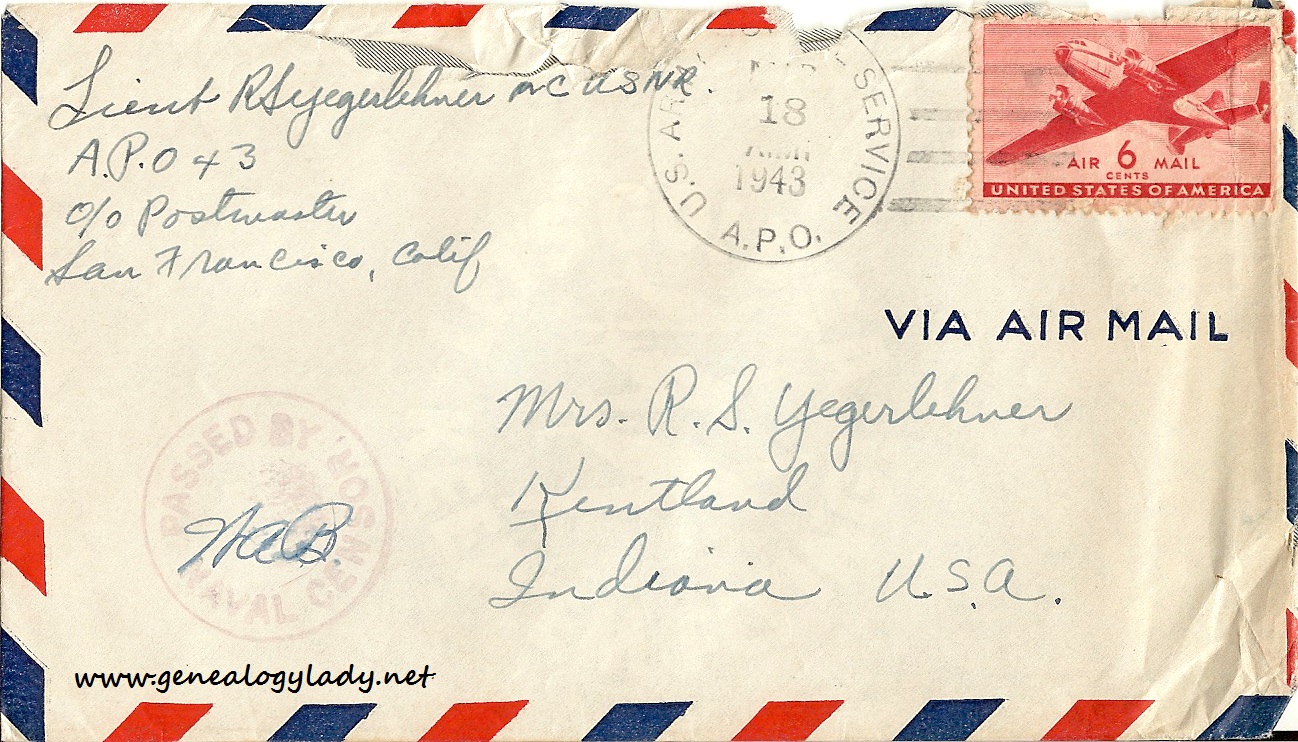 Lieut RSYegerlehner MC USNR.
A.P.O 43
c/o Postmaster
San Francisco, Calif
U.S. ARMY SERVICE
A.P.O.
18
1943
AIR 6 MAIL
CENTS
UNITED STATES OF AMERICA
VIA AIR MAIL
Mrs. R. S. Yegerlehner
Kentland
Indiana U.S.A.
PASSED BY
NAVAL CENSOR
www.genealogylady.net